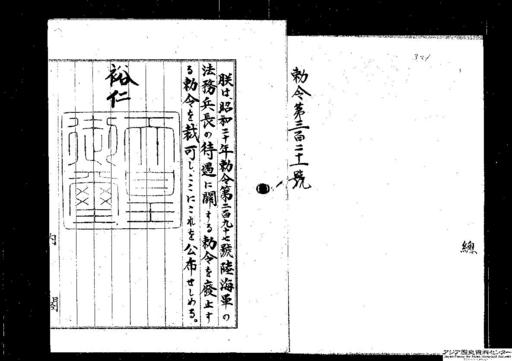 勅令第三百二十一號
總
朕は、昭和二十年勅令第二百九十七號陸海軍の
法務兵長の待遇に關する勅令を廢止す
る勅令を裁可し、ここにこれを公布せしめる。
裕仁
天皇
御璽
内閣
アジア歴史資料センター
Japan Center for Asian Historical Records